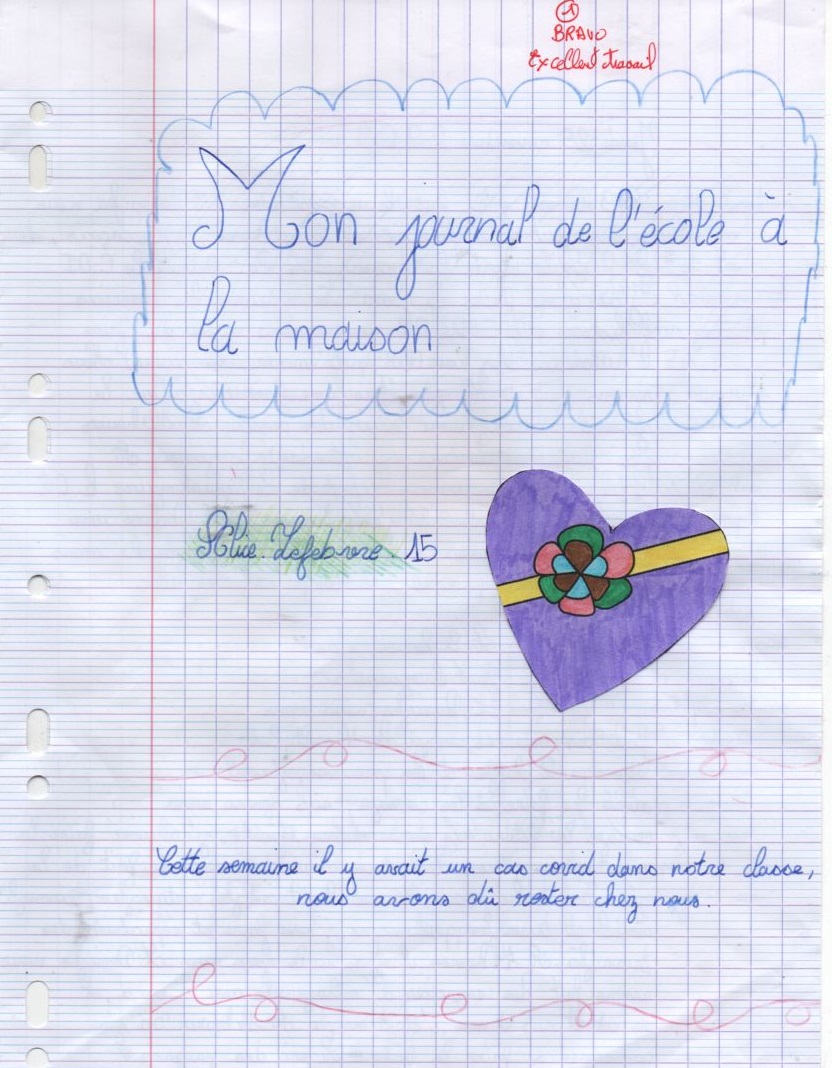 1
BRAVO
Excellent travail
Mon journal de l'école à
la maison
Lefebvre. 15
Cette semaine il y avait un cas covid dans notre classe,
nous avons dû rester chez nous.